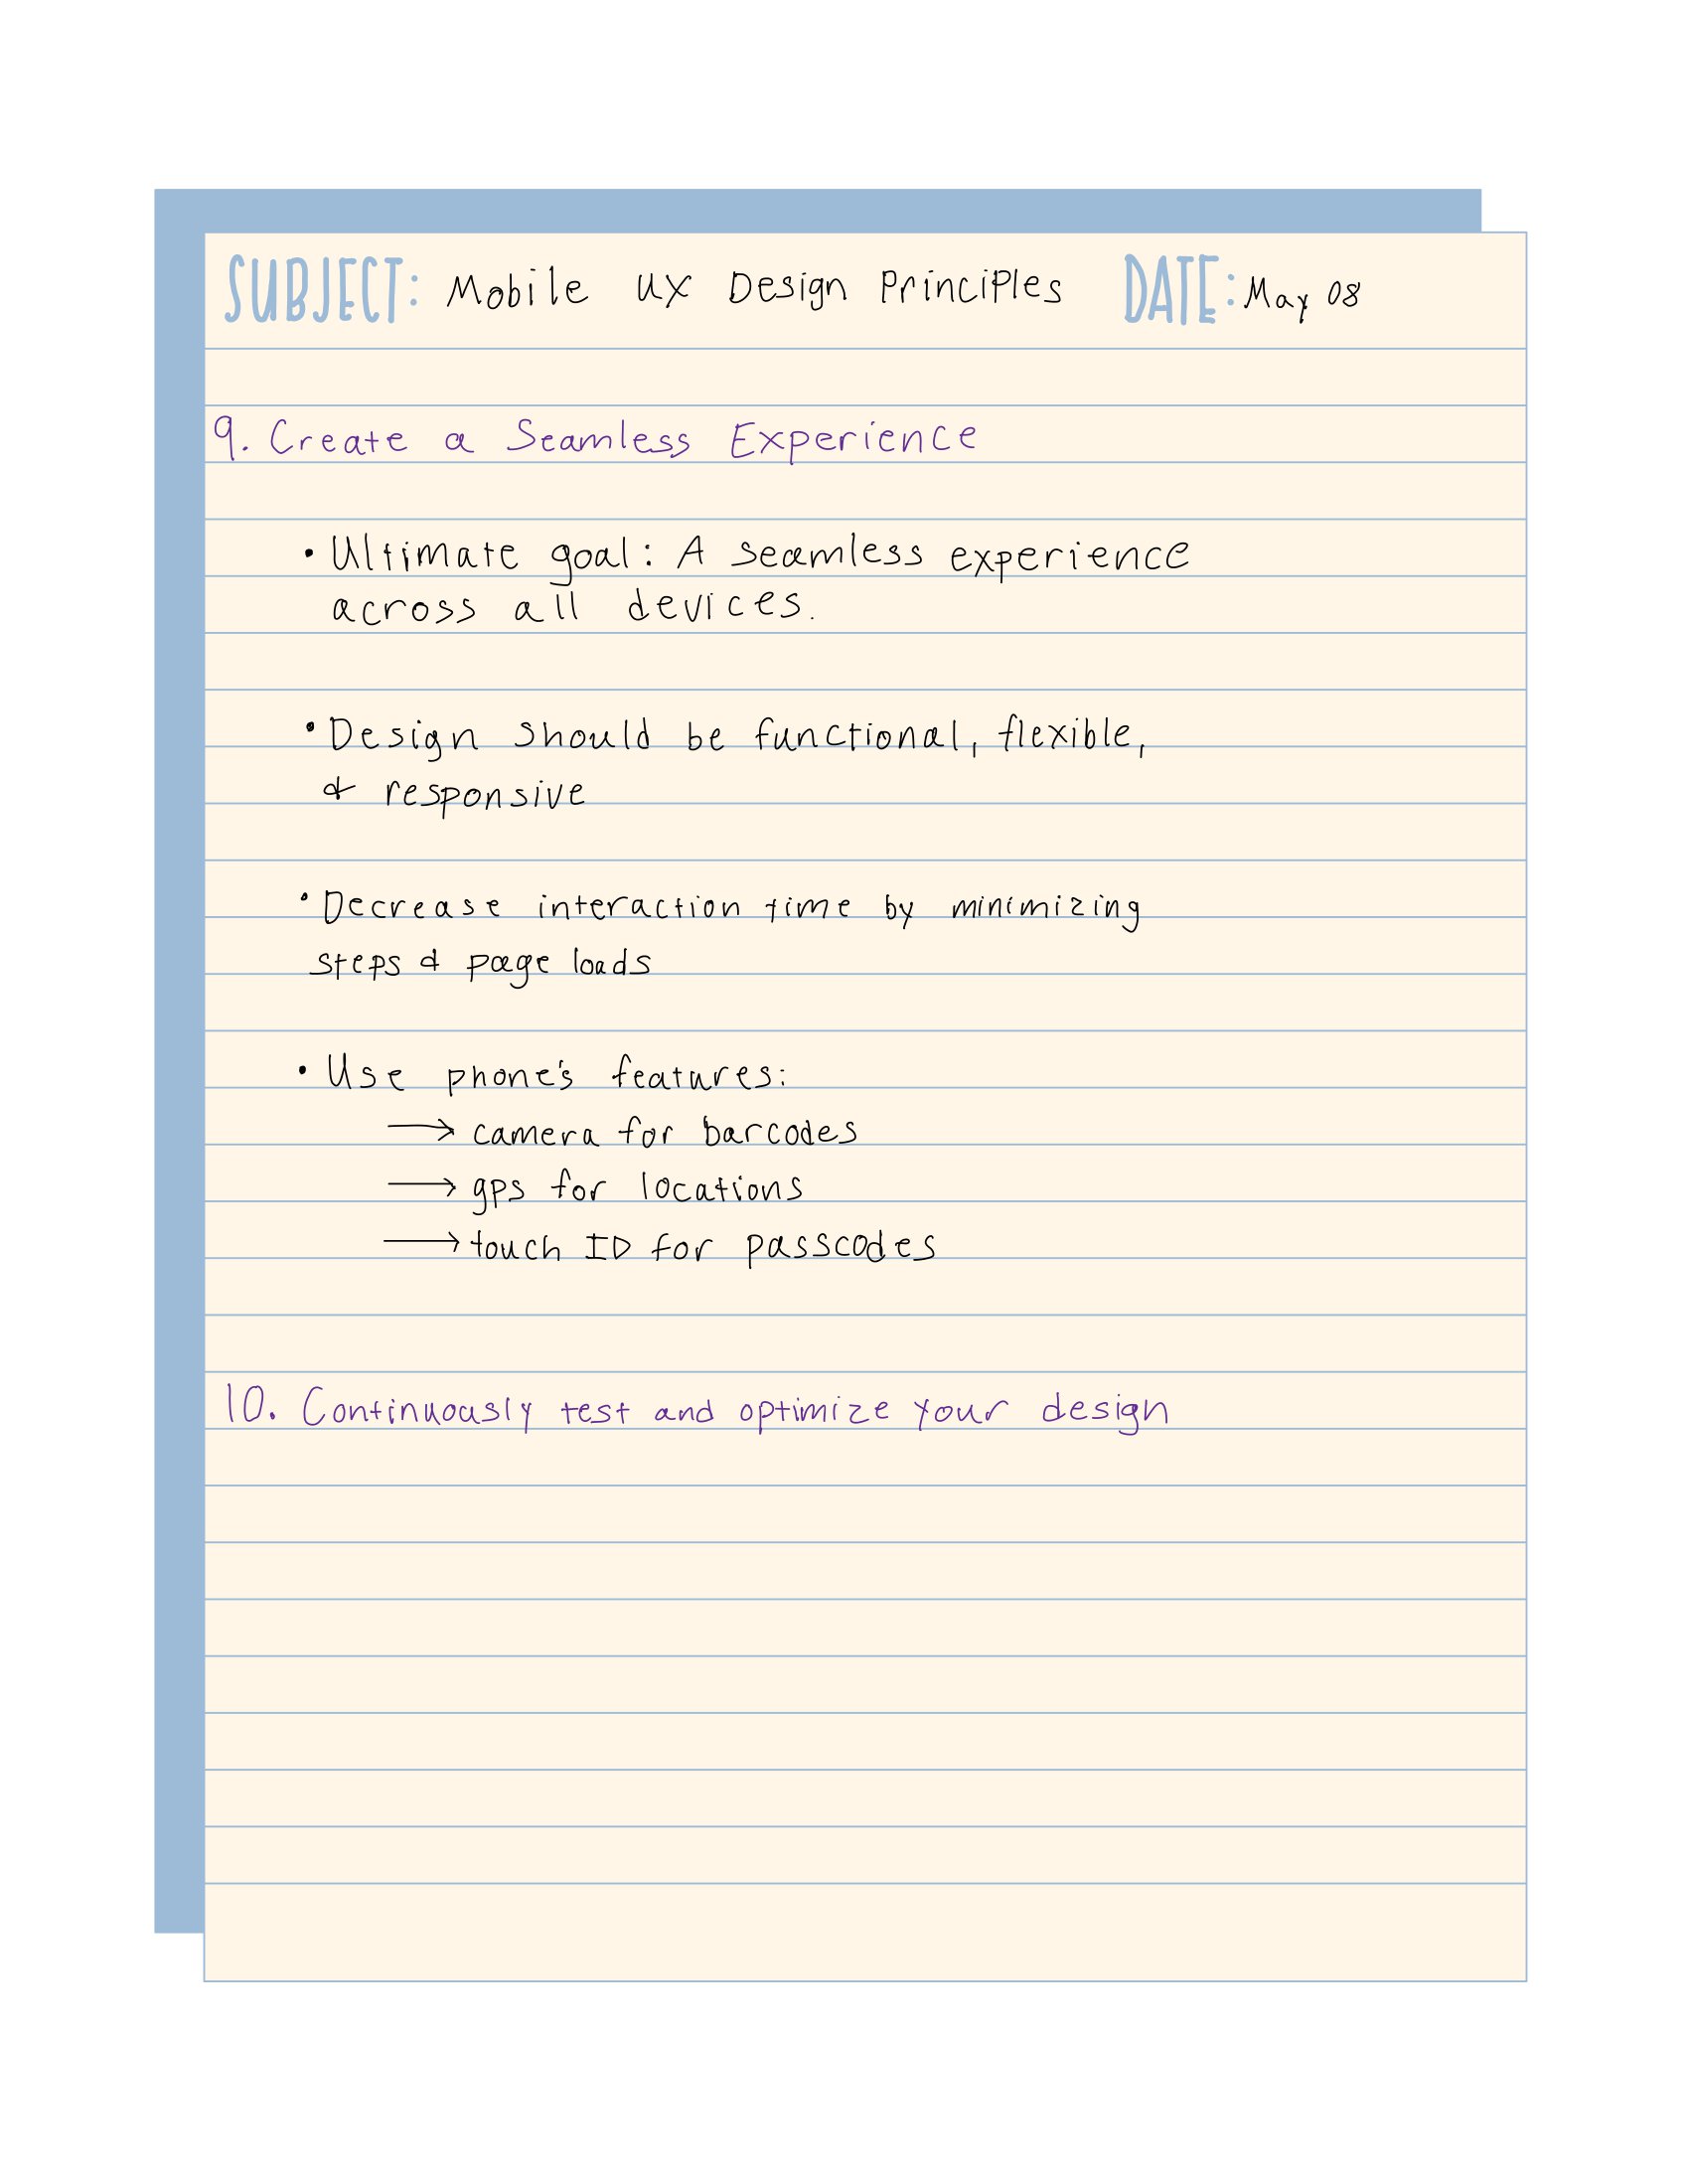 SUBJECT: Mobile UX Design Principles DATE: May 08
9. Create a Seamless Experience
• Ultimate goal: A seamless experience
across all devices.
• Design should be functional, flexible,
& responsive
• Decrease interaction time by minimizing
steps & page loads
• Use phone's features:
→ camera for barcodes
→ gps for locations
→ touch ID for passcodes
10. Continuously test and optimize your design